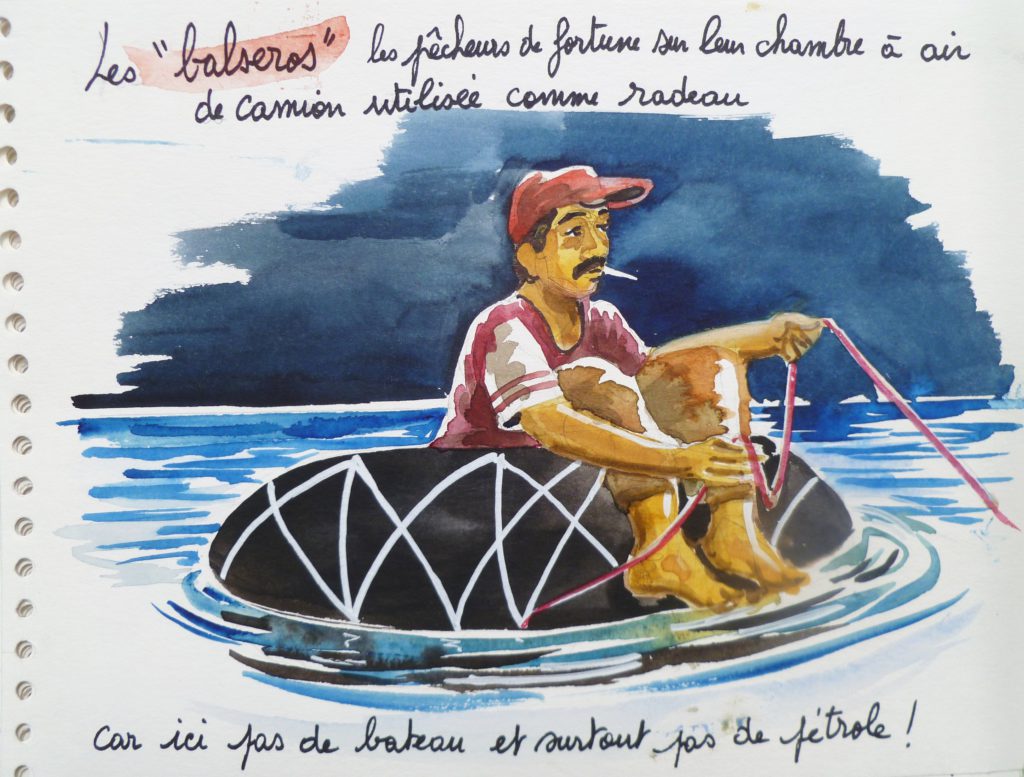 Les "balseros" les pêcheurs de fortune sur leur chambre à air
de camion utilisée comme radeau
car ici pas de bateau et surtout pas de pétrole !